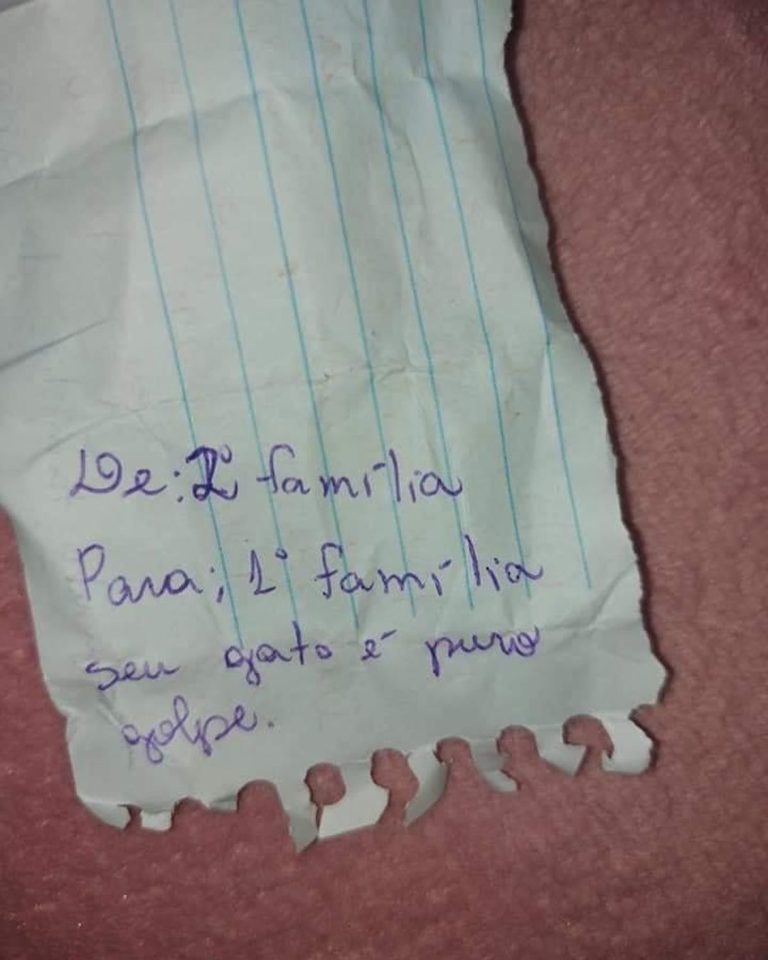 De: 2° família
Para; 1° família
seu gato é puro
golpe.